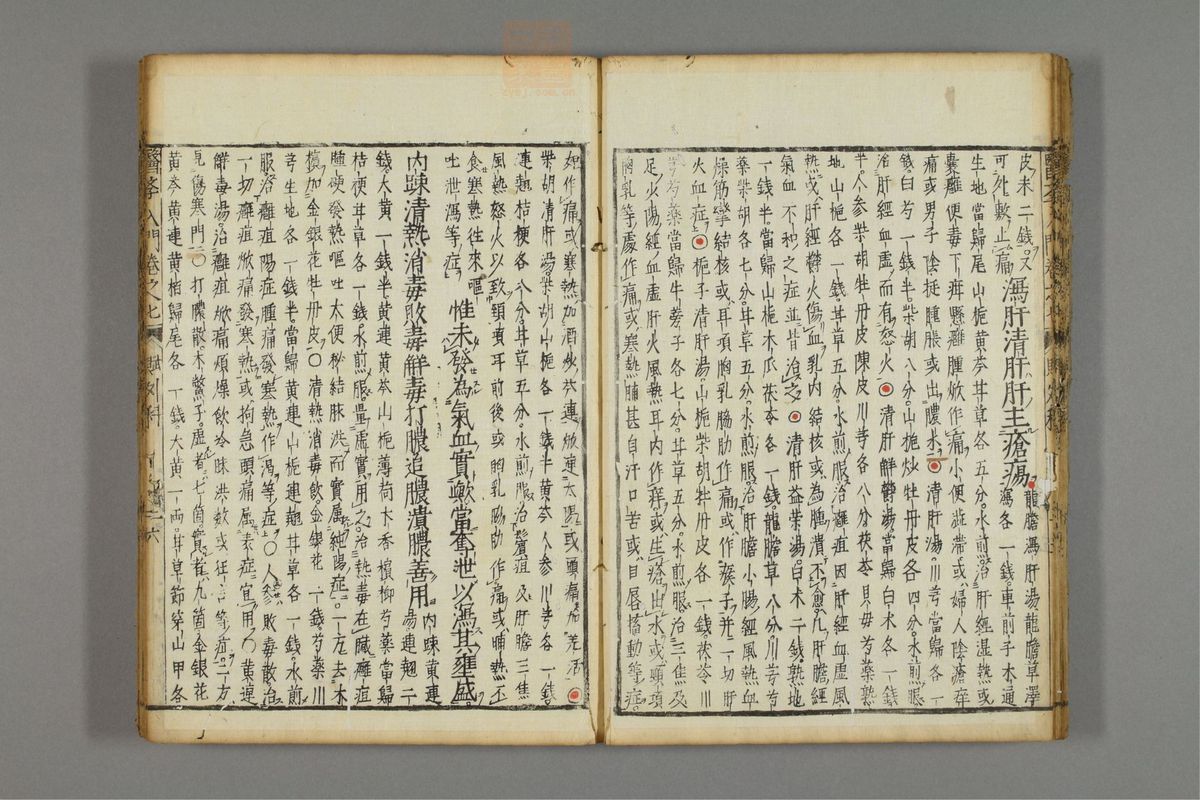 皮末二錢又
可外敷止痛瀉肝清肝肝主瘡瘍龍膽瀉肝湯龍膽草澤瀉各一錢車前子木通
生地當歸尾山梔黃芩甘草各五分水煎治肝經濕熱或
囊癰便毒下疳懸癰腫焮作痛小便澁滯或婦人陰瘡痒
痛或男子陰挺腫脹或出膿水清肝湯川芎當歸各一
錢白芍一錢半柴胡八分山梔炒牡丹皮各四分水煎服
治肝經血虛而有怒火清肝解鬱湯當歸白木各一錢
半人參柴胡牡丹皮陳皮川芎各八分茯苓貝母芍藥熟
地山梔各一錢甘草五分水煎服治癰疽因肝經血虛風
熱或肝經鬱火傷血乳內結核或為腫潰不愈凡肝膽經
氣血不和之症並皆治之清肝益荣湯白木二錢熟地
一錢半當歸山梔木瓜茯苓各一錢龍膽草八分川芎芍
藥柴胡各七分甘草五分水煎服治肝膽小腸經風熱血
燥筋攣結核或耳項胸乳脇肋作痛或作瘊子并一切肝
火血症梔子清肝湯山梔柴胡牡丹皮各一錢茯苓川
芎芍藥當歸牛蒡子各七分甘草五分水煎服治三焦及
足少陽經血虛肝火風熱耳內作痒或生瘡出水或頸項
胸乳等處作痛或寒熱晡甚自汗口苦或目唇搐動等症
如作痛或寒熱加酒炒芩連焮連太陽或頭痛加羌活
柴胡清肝湯柴胡山梔各一錢半黃芩人參川芎各一錢
連翹桔梗各八分甘草五分水煎服治鬢疽及肝膽三焦
風熱怒火以致頸項耳前後或胸乳脇肋作痛或晡熱不
食寒熱往來嘔
吐泄瀉等症惟未發為氣血實歟當奪泄以瀉其壅盛
內踈清熱消毒敗毒解毒打膿追膿潰膿善用內踈黃連湯連翹二
錢大黃一錢半黃連黃芩山梔薄荷木香檳榔芍藥當歸
桔梗甘草各一錢水煎服量虛實用之治熱毒在臟癰疽
腫硬發熱嘔吐大便秘結脉洪而實屬純陽症一方去木
檳加金銀花牡丹皮○清熱消毒飲金銀花一錢芍藥川
芎生地各一錢半當歸黃連山梔連翹甘草各一錢水煎
服治癰疽陽症腫痛發寒熱作渴等症○人參敗毒散治
一切癰疽焮痛發寒熱或拘急頭痛屬表症宜用○黃連
解毒湯治癰疽焮痛煩燥飲冷脉洪數或狂言等症二方
見傷寒門○打膿散木鱉子虛者七箇實者九箇金銀花
黃芩黃連黃栢歸尾各一錢大黃一兩甘草節穿山甲各
醫學入門卷之七
賦外科